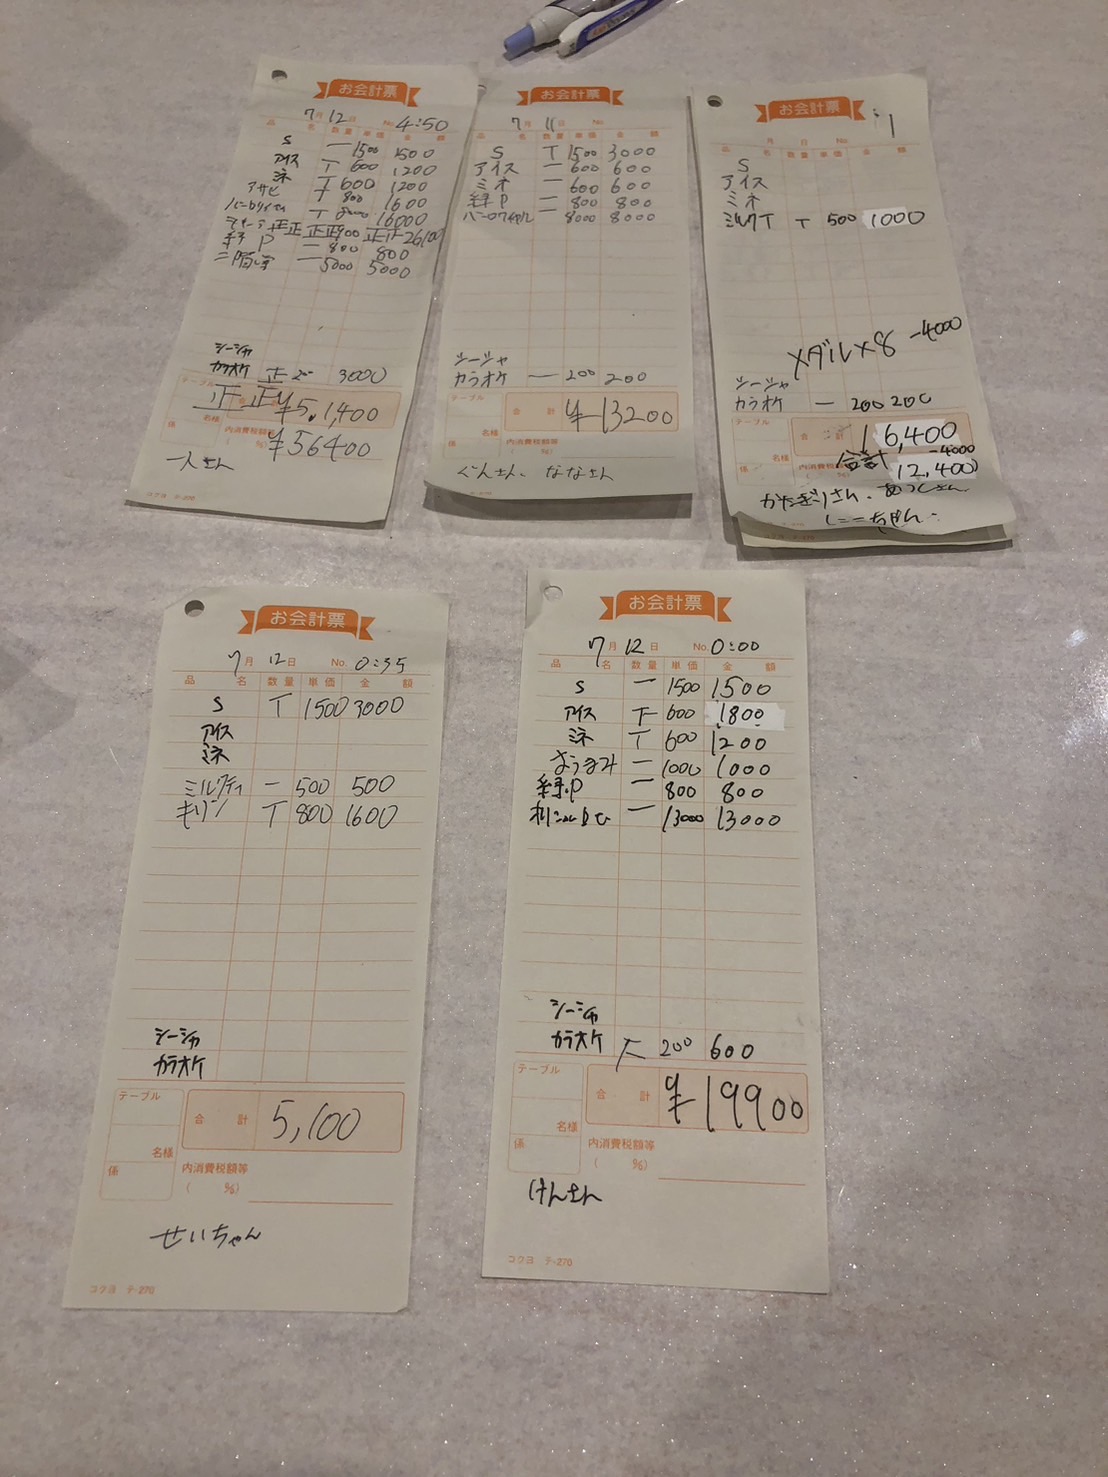 お会計票
7月 12日 No. 4:50
品 名 数量 単価 金 額
S 一 1500 1500
アイス T 600 1200
ミネ T 600 1200
アサヒ T 800 1600
T 8000 16000
正正正正 900 正正 26100
一 800 800
二階席 一 5000 5000
シーシャ
カラオケ 正 200 3000
正正
テーブル
合 計 ¥51,400
名様
係
内消費税額等
( %) ¥56400
一人さん
コクヨ テ-270
お会計票
7月 11日 No.
品 名 数量 単価 金 額
S T 1500 3000
アイス 一 600 600
ミネ 一 600 600
一 800 800
一 8000 8000
シーシャ
カラオケ 一 200 200
テーブル
合 計 ¥13200
名様
係
内消費税額等
( %)
ぐんさん、ななさん
コクヨ テ-270
お会計票
月 日 No.
品 名 数量 単価 金 額
S
アイス
ミネ
ミルクT T 500 1000
メダル×8 -4000
シーシャ
カラオケ 一 200 200
テーブル
合 計 16,400
-4000
名様
係
内消費税額等
合計 12,400
かたぎりさん、あつしさん
しーちゃん
お会計票
7月 12日 No. 0:35
品 名 数量 単価 金 額
S T 1500 3000
アイス
ミネ
ミルクティ 一 500 500
キリン T 800 1600
シーシャ
カラオケ
テーブル
合 計 5,100
名様
係
内消費税額等
( %)
せいちゃん
コクヨ テ-270
お会計票
7月 12日 No. 0:00
品 名 数量 単価 金 額
S 一 1500 1500
アイス 下 600 1800
ミネ T 600 1200
一 1000 1000
一 800 800
一 13000 13000
シーシャ
カラオケ 下 200 600
テーブル
合 計 ¥19900
名様
係
内消費税額等
( %)
けんさん
コクヨ テ-270